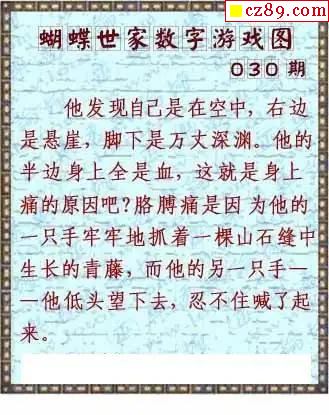 cz89.com
蝴蝶世家数字游戏图
030期
他发现自己是在空中，右边
是悬崖，脚下是万丈深渊。他的
半边身上全是血，这就是身上
痛的原因吧?胳膊痛是因为他的
一只手牢牢地抓着一棵山石缝中
生长的青藤，而他的另一只手—
—他低头望下去，忍不住喊了起
来。